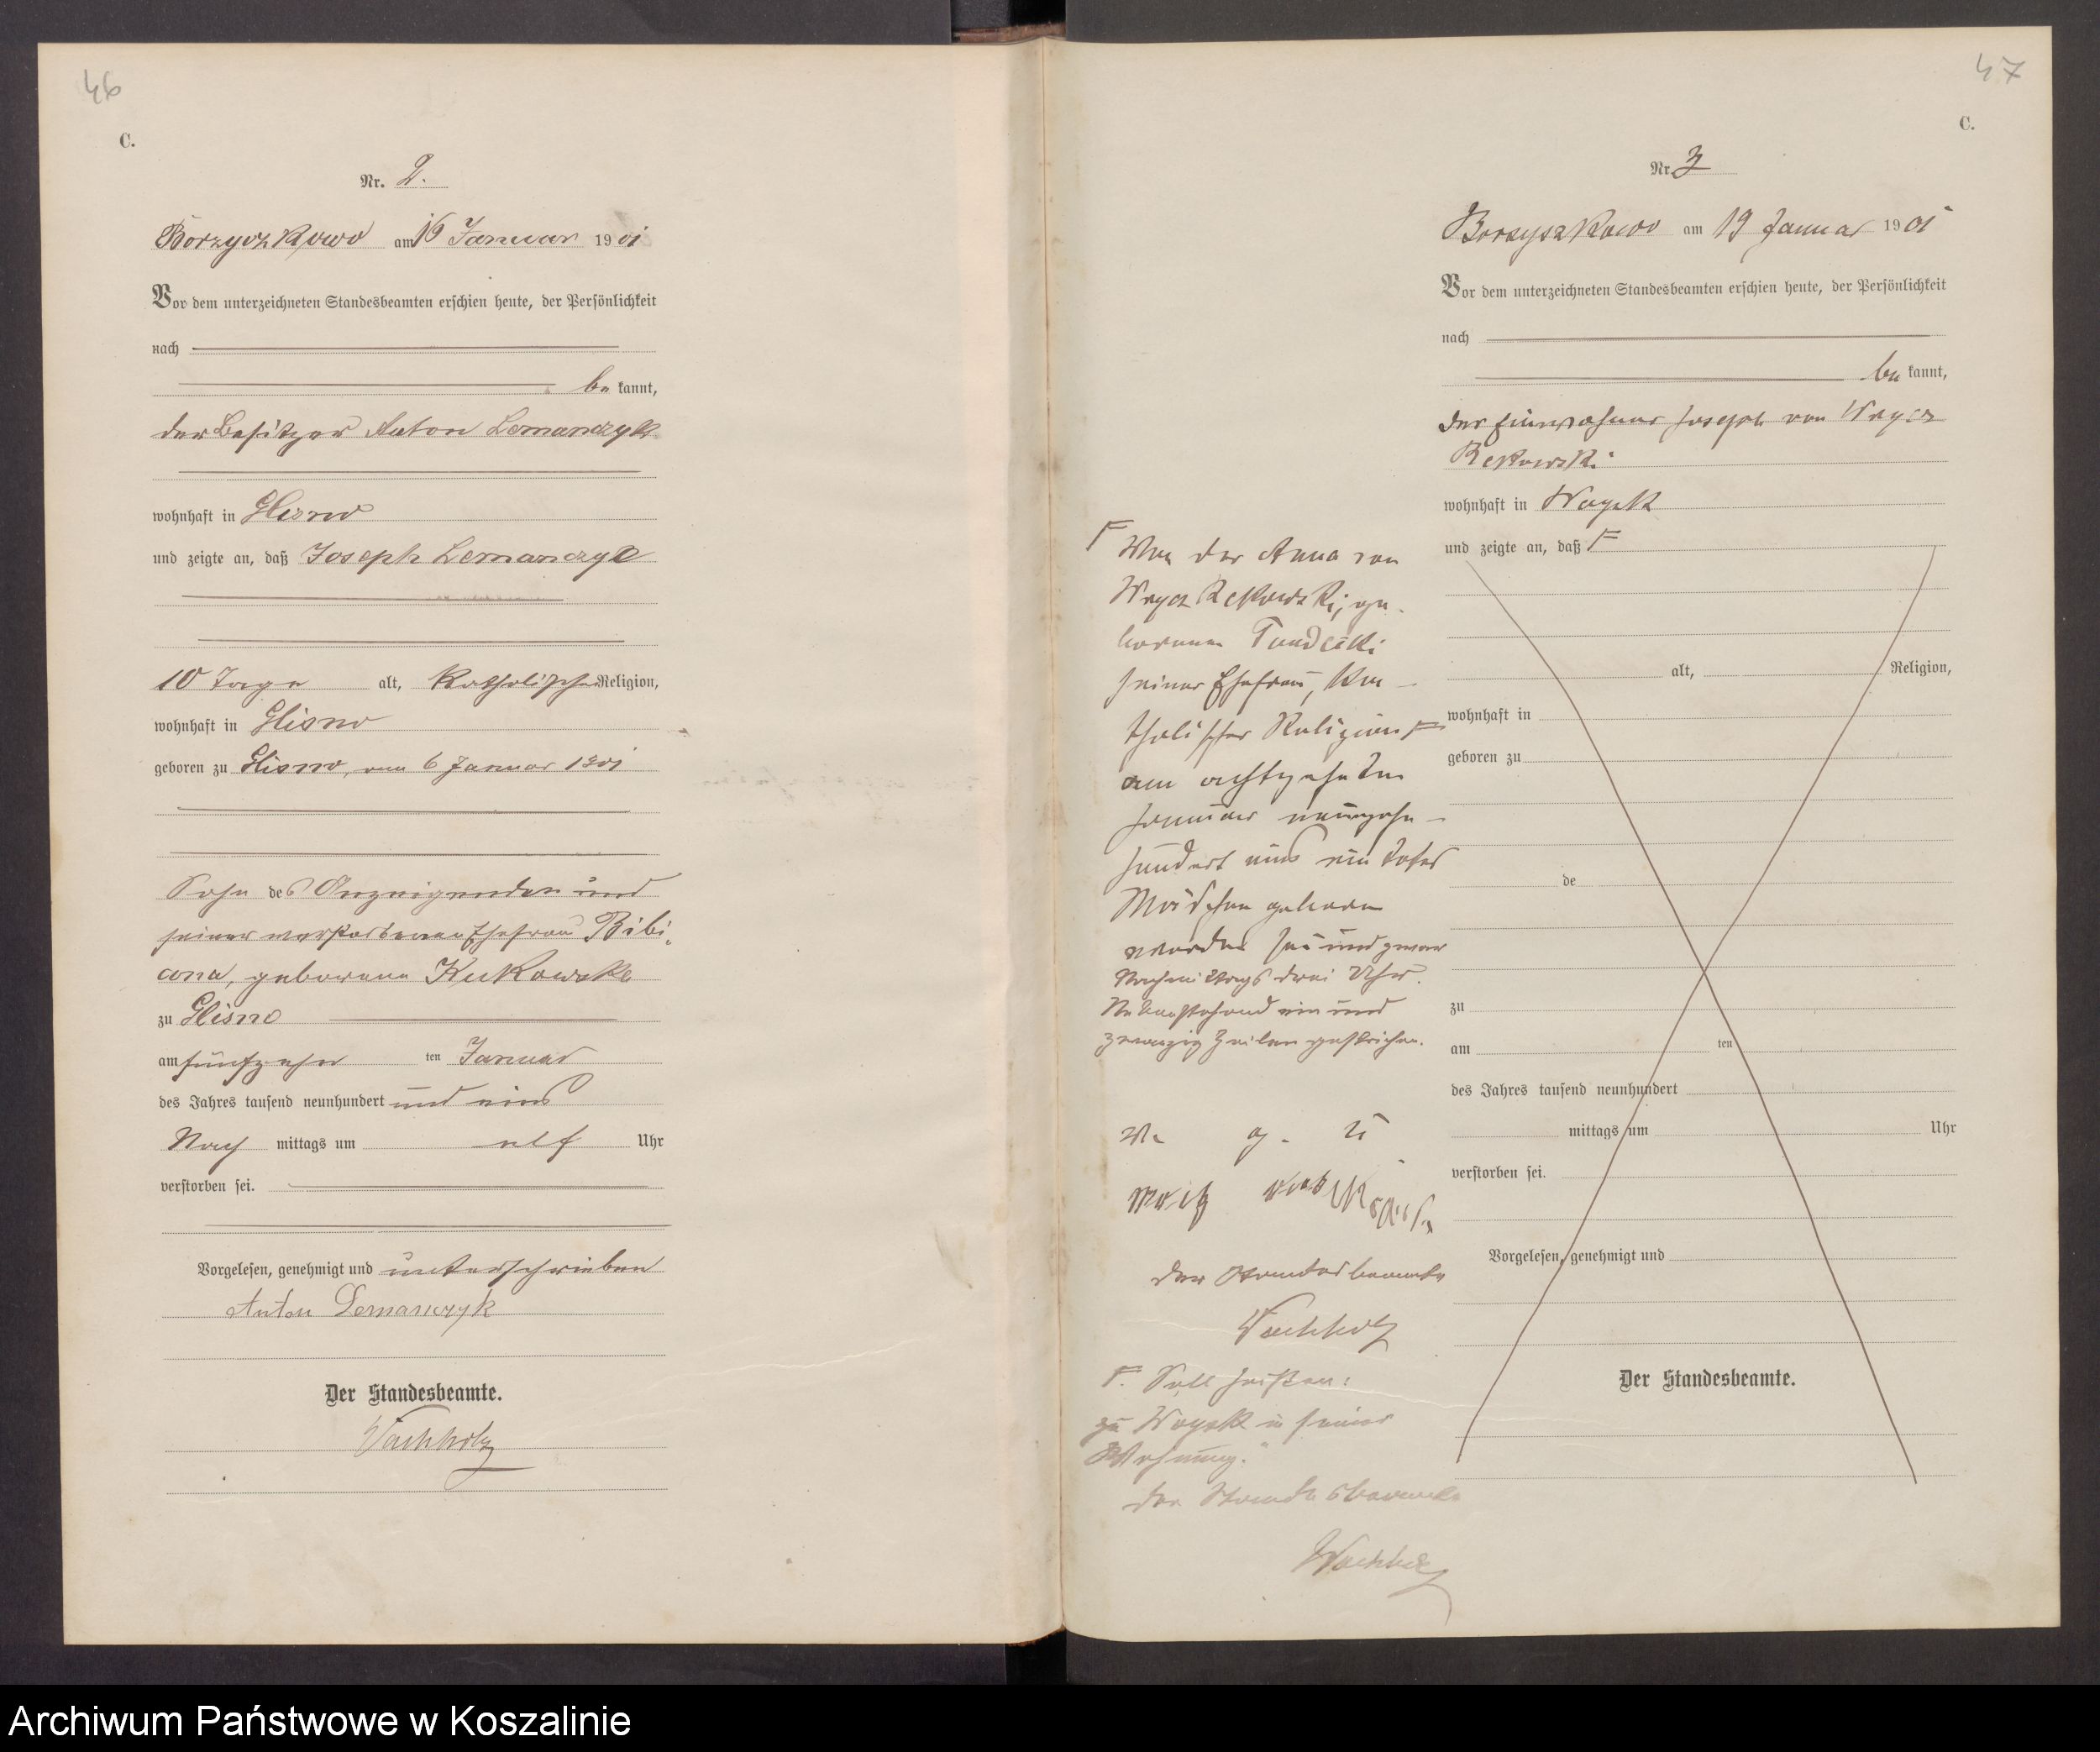 46
C.
Nr. 2.
Borzyszkowo am 16 Januar 1901
Vor dem unterzeichneten Standesbeamten erschien heute, der Persönlichkeit
nach
be kannt,
der Besitzer Anton Lemanczyk
wohnhaft in Glisno
und zeigte an, daß Joseph Lemanczyk
10 Tage alt, Katholischer Religion,
wohnhaft in Glisno
geboren zu Glisno, am 6 Januar 1901
Sohn des Anzeigenden und
seiner verstorbenen Ehefrau Bibi
ana, geborene Kukowska
zu Glisno
am fünfzehn ten Januar
des Jahres tausend neunhundert und eins
Nach mittags um elf Uhr
verstorben sei.
Vorgelesen, genehmigt und unterschrieben
Anton Lemanczyk
Der Standesbeamte.
Wachholz
47
C.
Nr. 3
Borzyszkowo am 19 Januar 1901
Vor dem unterzeichneten Standesbeamten erschien heute, der Persönlichkeit
nach
be kannt,
der Einwohner Joseph von Wrycz
Rekowski
wohnhaft in Woysk
und zeigte an, daß F
alt, Religion,
wohnhaft in
geboren zu
de
zu
am ten
des Jahres tausend neunhundert
mittags um Uhr
verstorben sei.
Vorgelesen, genehmigt und
Der Standesbeamte.
F Von der Anna von
Wrycz Rekowski, ge-
borenen
seiner Ehefrau, Ka-
tholischer Religion F
am achtzehnten
Januar neunzehn-
hundert eins ein totes
Mädchen geboren
worden sei und zwar
Nachmittags drei Uhr.
Nebenstehend ein und
zwanzig Zeilen gestrichen.
v. g. u
Der Standesbeamte
Wachholz
F. Soll heißen:
zu Woysk in seiner
Wohnung."
Der Standesbeamte
Wachholz
Archiwum Państwowe w Koszalinie